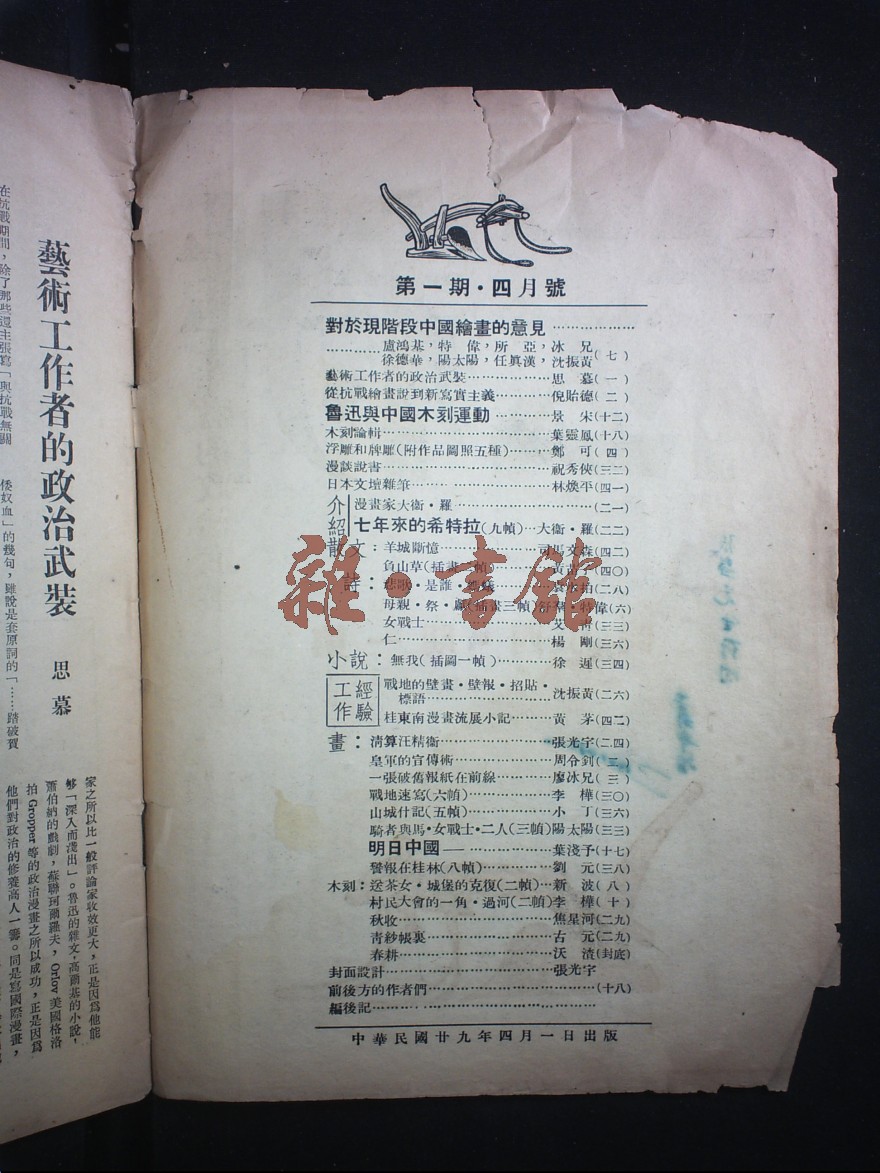 第一期·四月號
對於現階段中國繪畫的意見………………
…………盧鴻基,特偉,所亞,冰兄
徐德華,陽太陽,任眞漢,沈振黃(七)
藝術工作者的政治武裝………………思慕(一)
從抗戰繪畫說到新寫實主義…………倪貽德(二)
魯迅與中國木刻運動…………景宋(十二)
木刻論輯………………葉靈鳳(十八)
浮雕和牌雕(附作品圖照五種)………鄭可(四)
漫談說書………………祝秀俠(三二)
日本文壇雜筆………………林煥平(四一)
介紹
漫畫家大衞·羅………………(二一)
七年來的希特拉(九幀)…大衞·羅(二二)
散文:羊城斷憶………………司馬文森(四二)
負山草(插畫 幀)…………黃 (四〇)
詩:悲歌·是誰· ………… (二八)
母親·祭· (插畫三幀) 特偉(六)
女戰士………………艾青(三三)
仁………………楊剛(三六)
小說:無我(插圖一幀)…………徐遲(三四)
工作經驗
戰地的壁畫·壁報·招貼·
標語………………沈振黃(二六)
桂東南漫畫流展小記………黃茅(四二)
畫:清算汪精衞………………張光宇(二四)
皇軍的宣傳術………………周令釗(二)
一張破舊報紙在前線………廖冰兄(三)
戰地速寫(六幀)………………李樺(三〇)
山城什記(五幀)………………小丁(三六)
騎者與馬·女戰士·二人(三幀)陽太陽(三三)
明日中國——………………葉淺予(十七)
警報在桂林(八幀)………………劉元(三八)
木刻:送茶女·城堡的克復(二幀)…新波(八)
村民大會的一角·過河(二幀)李樺(十)
秋收………………焦星河(二九)
青紗帳裏………………古元(二九)
春耕………………沃渣(封底)
封面設計………………張光宇
前後方的作者們………………(十八)
編後記………………
中華民國廿九年四月一日出版
雜·書館
藝術工作者的政治武裝
思慕
在抗戰期間,除了那些還主張寫「與抗戰無關
倭奴血」的幾句,雖說是套原詞的「……踏破賀
家之所以比一般評論家收效更大,正是因爲他能
够「深入而淺出」。魯迅的雜文,高爾基的小說,
蕭伯納的戲劇,蘇聯珂爾羅夫,Orlov美國格洛
拍Gropper等的政治漫畫之所以成功,正是因爲
他們對政治的修養高人一籌。同是寫國際漫畫,